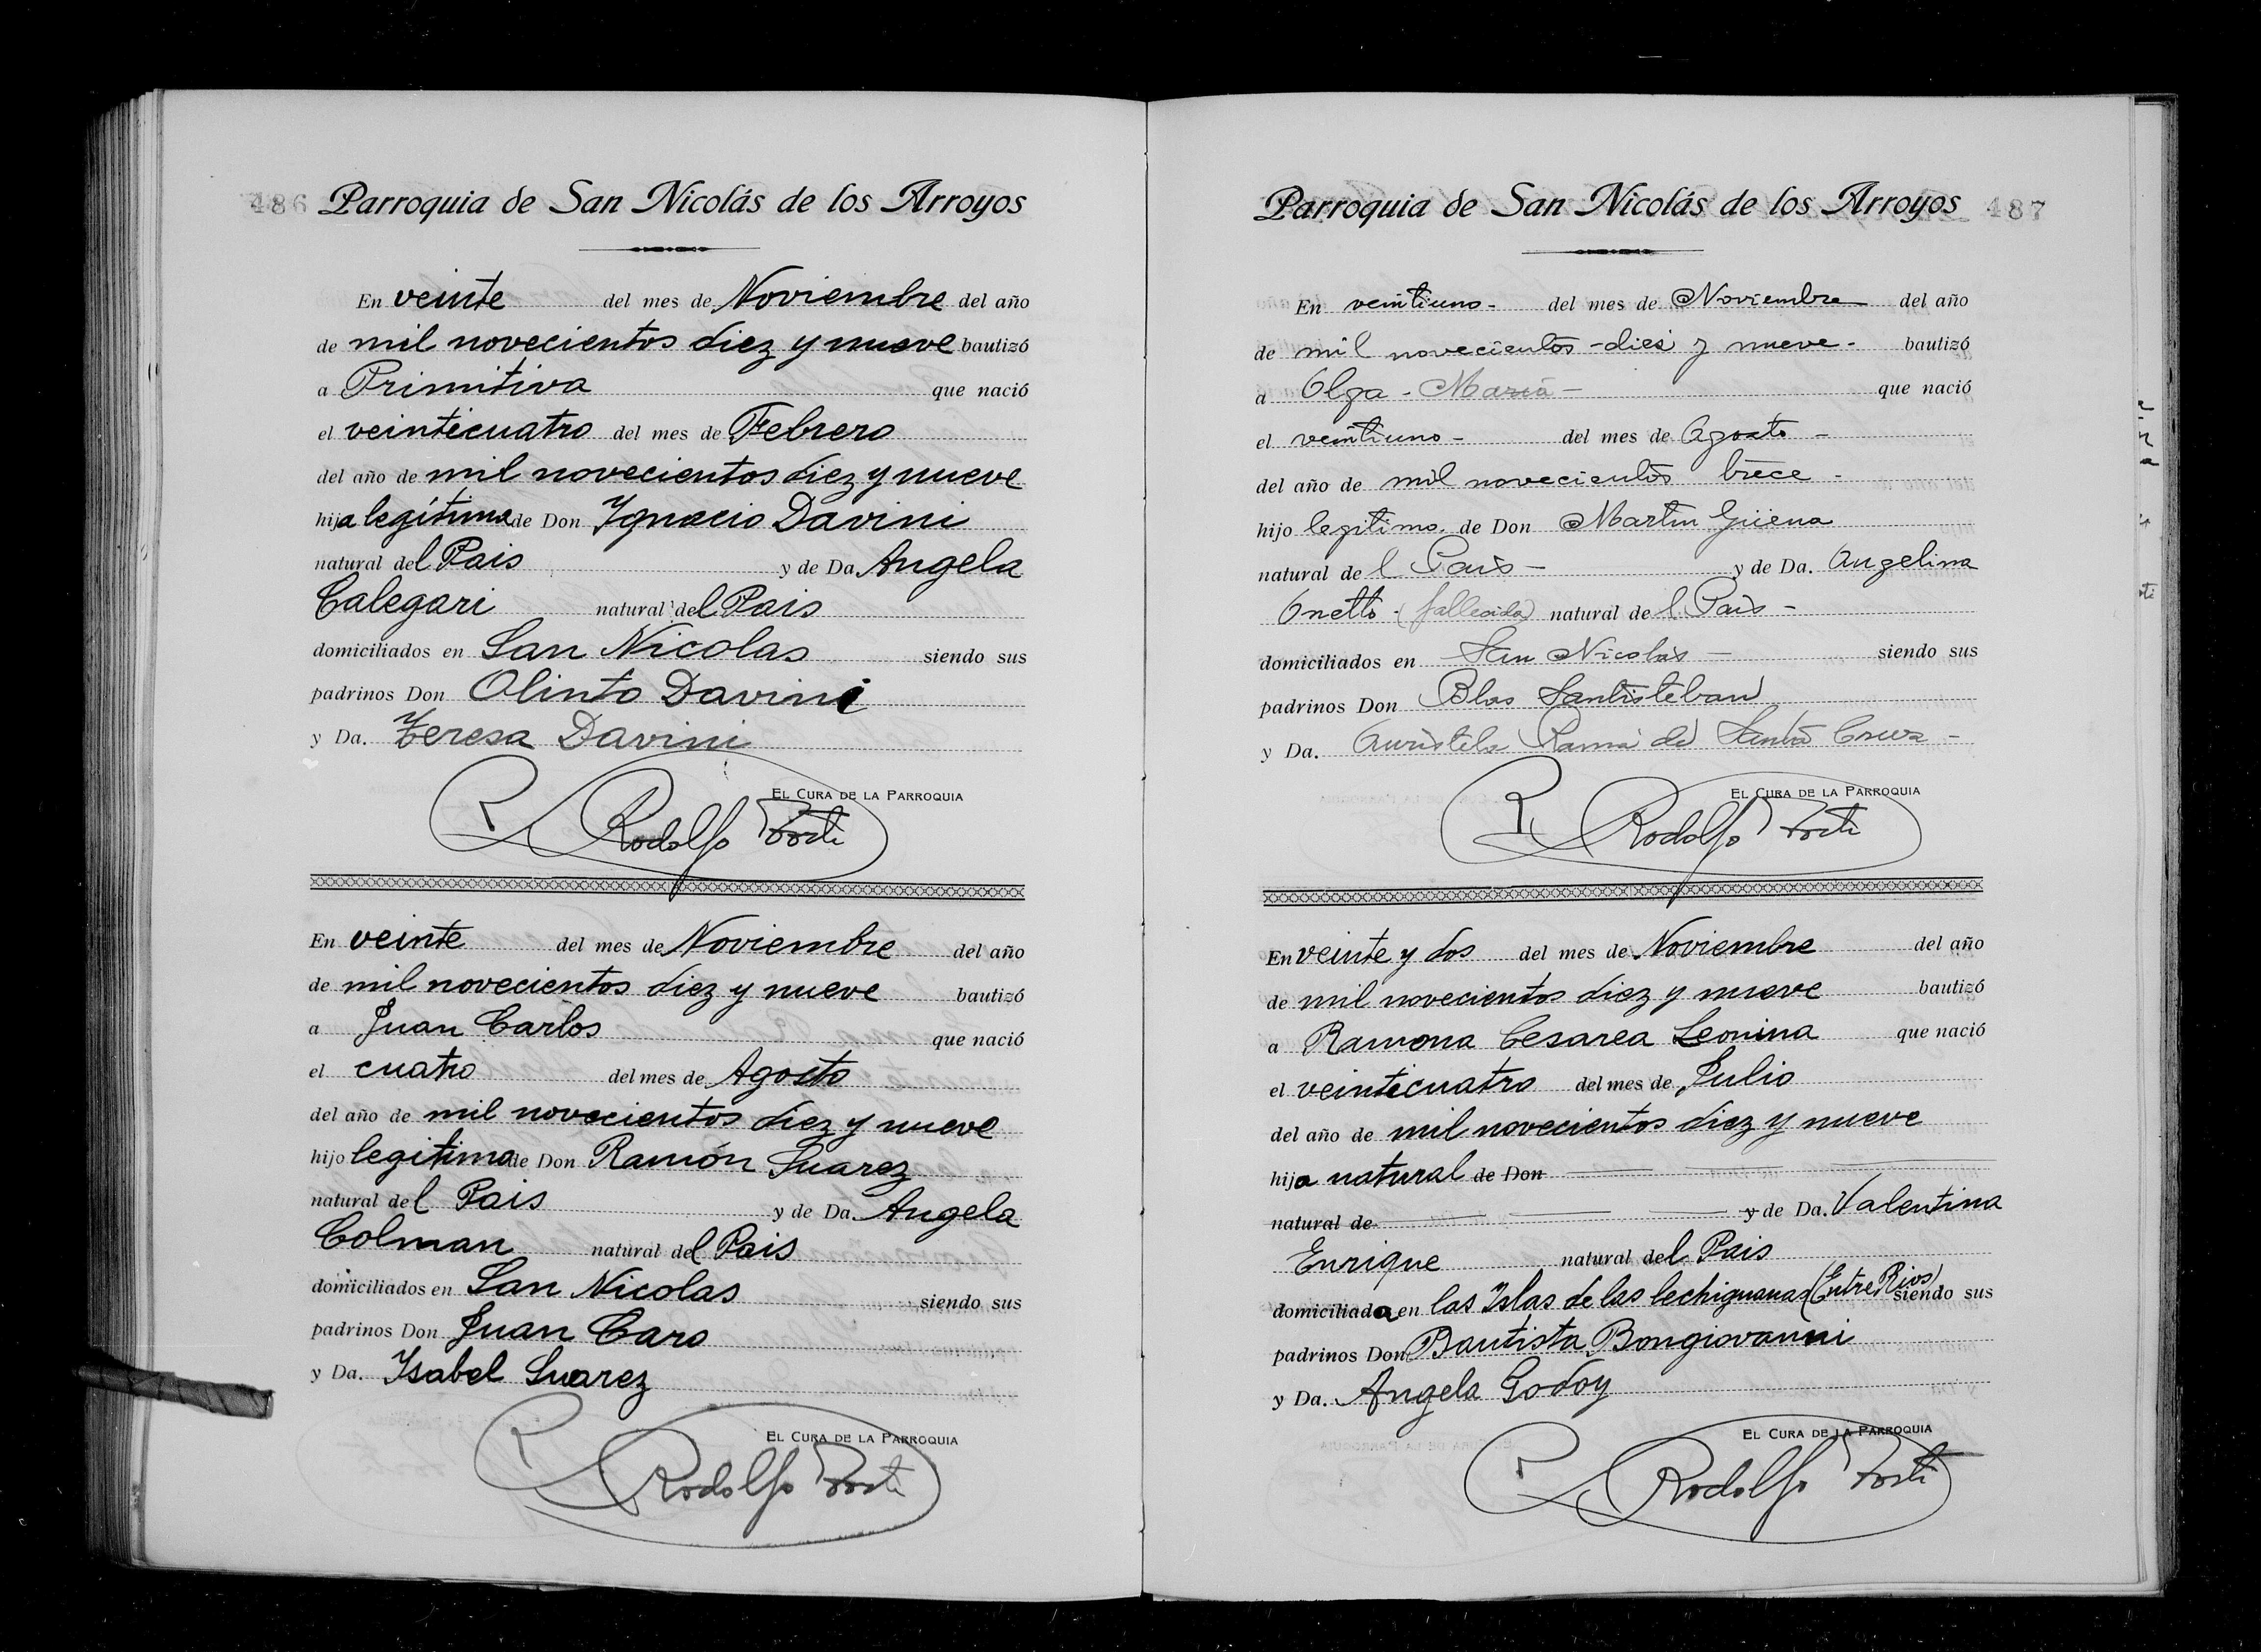 486 Parroquia de San Nicolás de los Arroyos
En veinte del mes de Noviembre del año
de mil novecientos diez y nueve bautizó
a Primitiva que nació
el veinticuatro del mes de Febrero
del año de mil novecientos diez y nueve
hija legítima de Don Ygnacio Davini
natural del Pais y de Da. Angela
Calegari natural del Pais
domiciliados en San Nicolas siendo sus
padrinos Don Olinto Davini
y Da. Teresa Davini
EL CURA DE LA PARROQUIA
Rodolfo
En veinte del mes de Noviembre del año
de mil novecientos diez y nueve bautizó
a Juan Carlos que nació
el cuatro del mes de Agosto
del año de mil novecientos diez y nueve
hijo legitimo de Don Ramón Suarez
natural del Pais y de Da. Angela
Colman natural del Pais
domiciliados en San Nicolas siendo sus
padrinos Don Juan Caro
y Da. Ysabel Suarez
EL CURA DE LA PARROQUIA
Rodolfo
Parroquia de San Nicolás de los Arroyos 487
En veintiuno - del mes de Noviembre del año
de mil novecientos - dies y nueve - bautizó
a Olga - Maria - que nació
el veintiuno - del mes de Agosto -
del año de mil novecientos trece -
hijo legitimo de Don Martin Güena
natural del Pais - y de Da. Angelina
Onetto - (fallecida) natural del Pais -
domiciliados en San Nicolás - siendo sus
padrinos Don Blas Santisteban
y Da. Auristela de Santa Cruz -
EL CURA DE LA PARROQUIA
Rodolfo
En veinte y dos del mes de Noviembre del año
de mil novecientos diez y nueve bautizó
a Ramona Cesarea Leonina que nació
el veinticuatro del mes de Julio
del año de mil novecientos diez y nueve
hija natural de Don
natural de y de Da. Valentina
Enrique natural del Pais
domiciliada en las Islas de las lechiguanas (Entre Rios) siendo sus
padrinos Don Bautista Bongiovanni
y Da. Angela Godoy
EL CURA DE LA PARROQUIA
Rodolfo